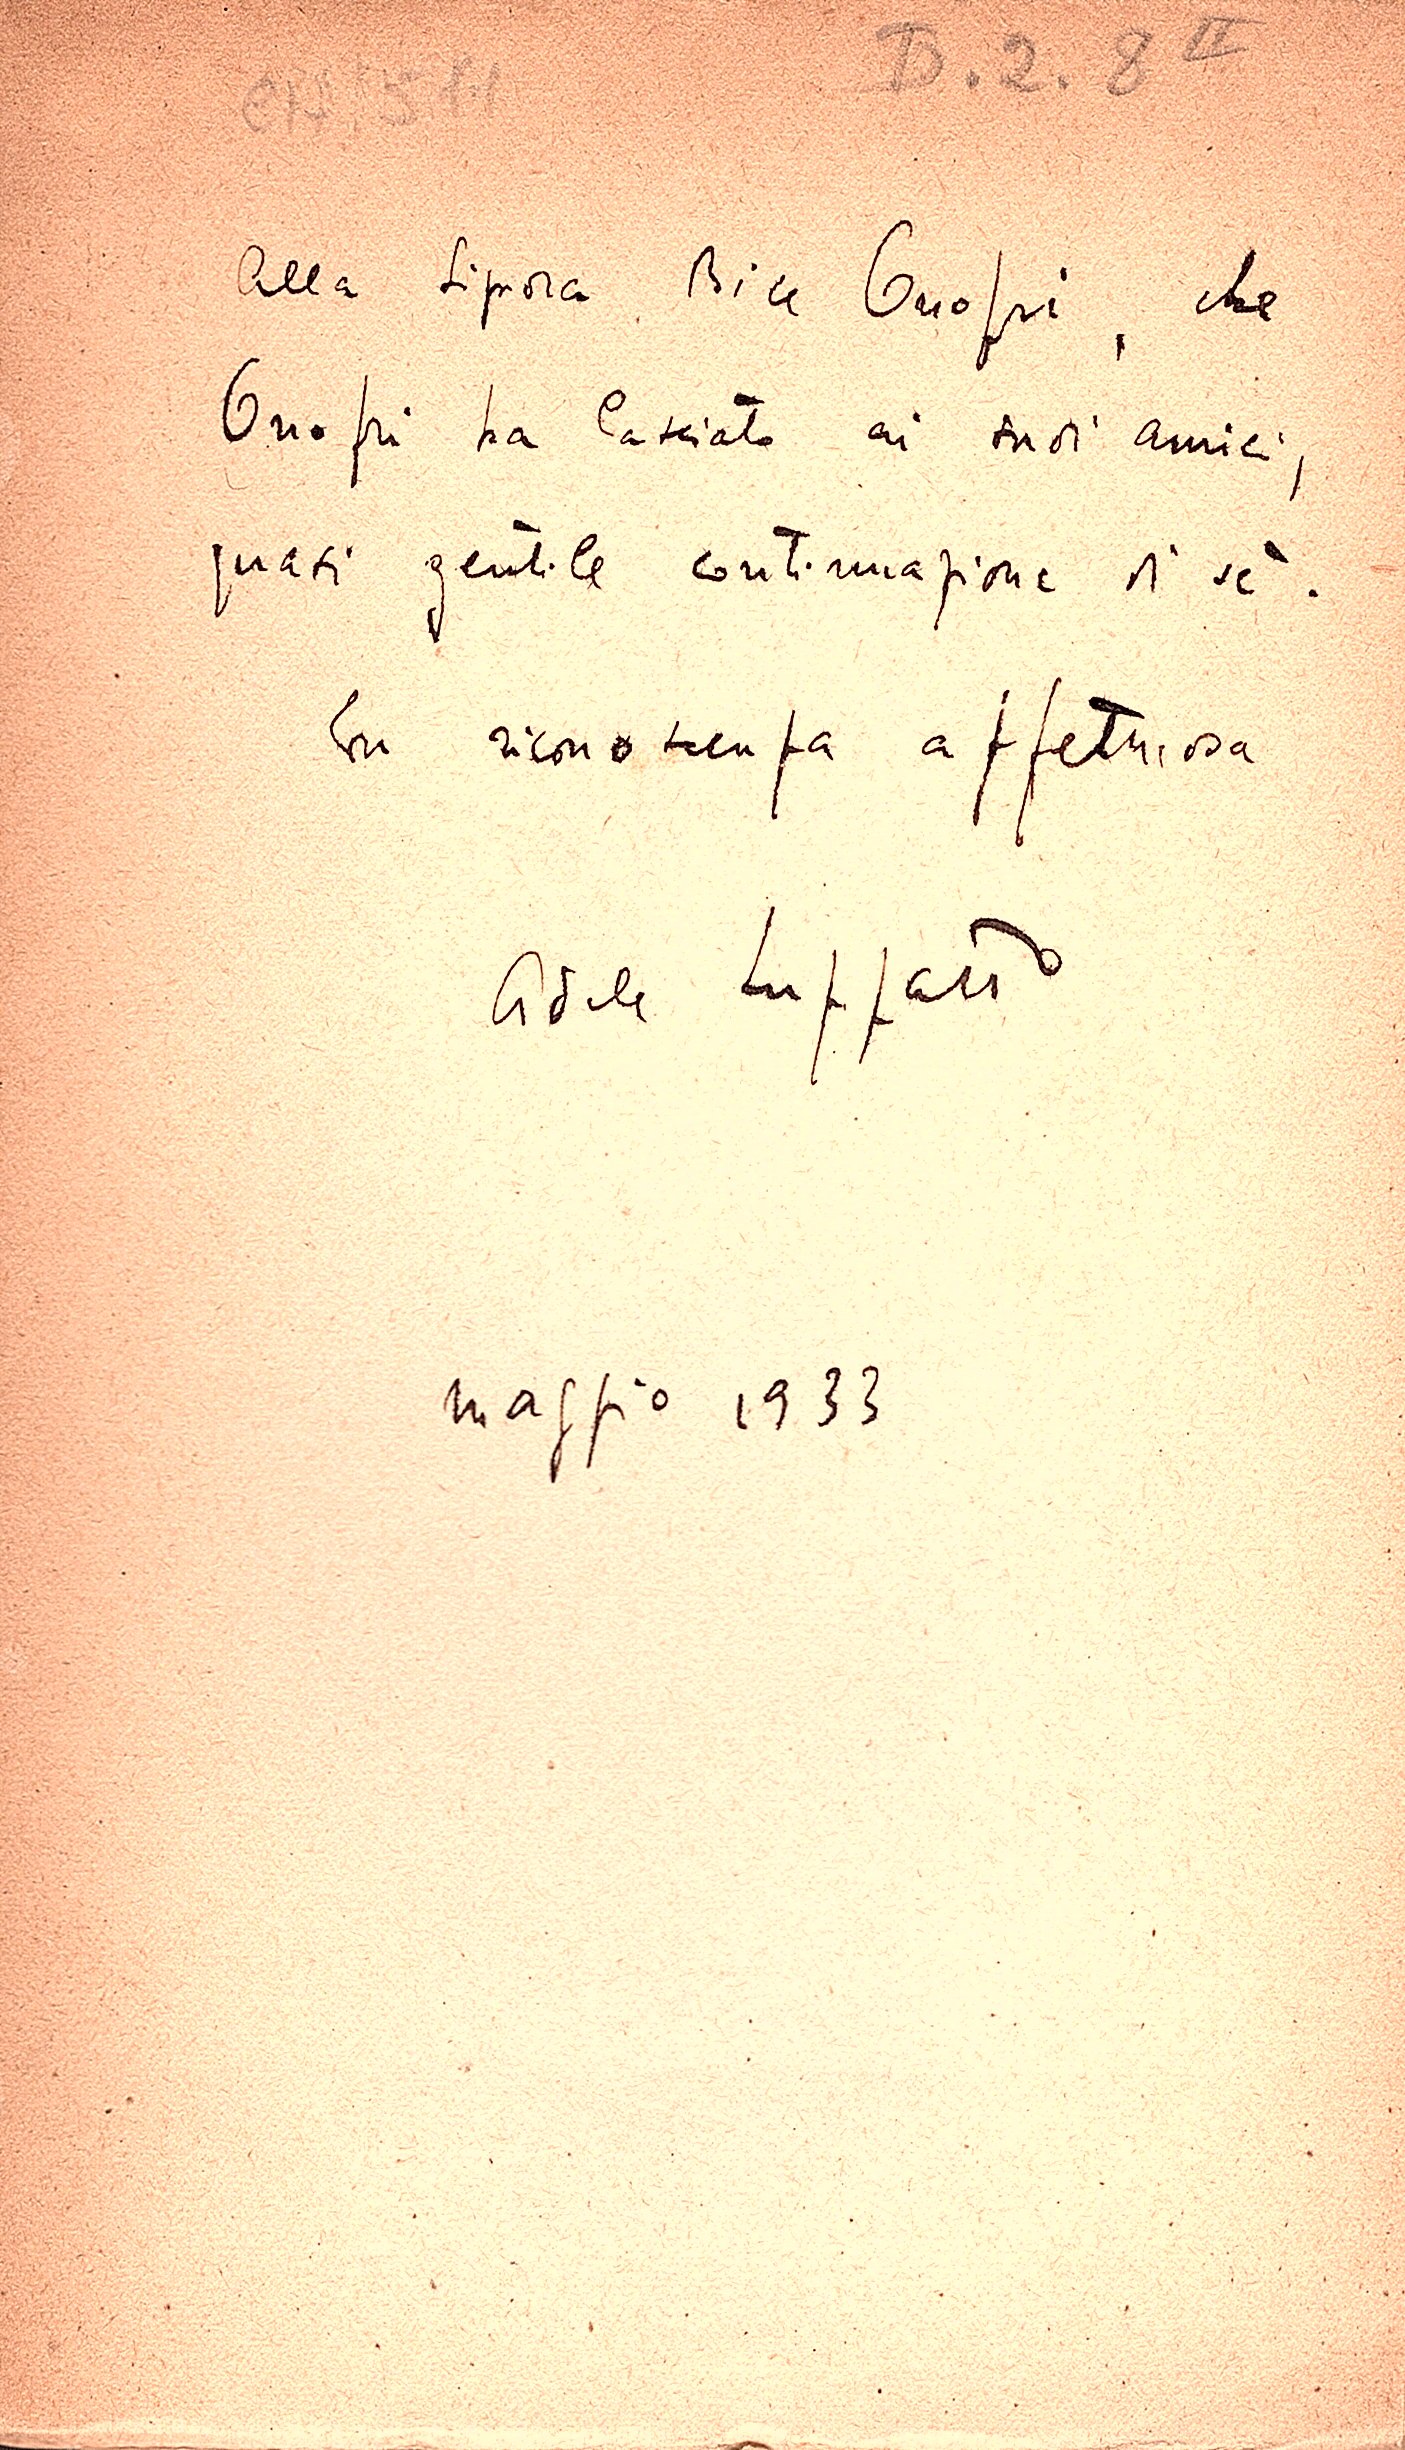 D.2.8 II
Alla Signora Bice Onofri, che
Onofri ha lasciato ai suoi amici,
quasi gentile continuazione di sé.
Con riconoscenza affettuosa
Adele Luzzatto
maggio 1933